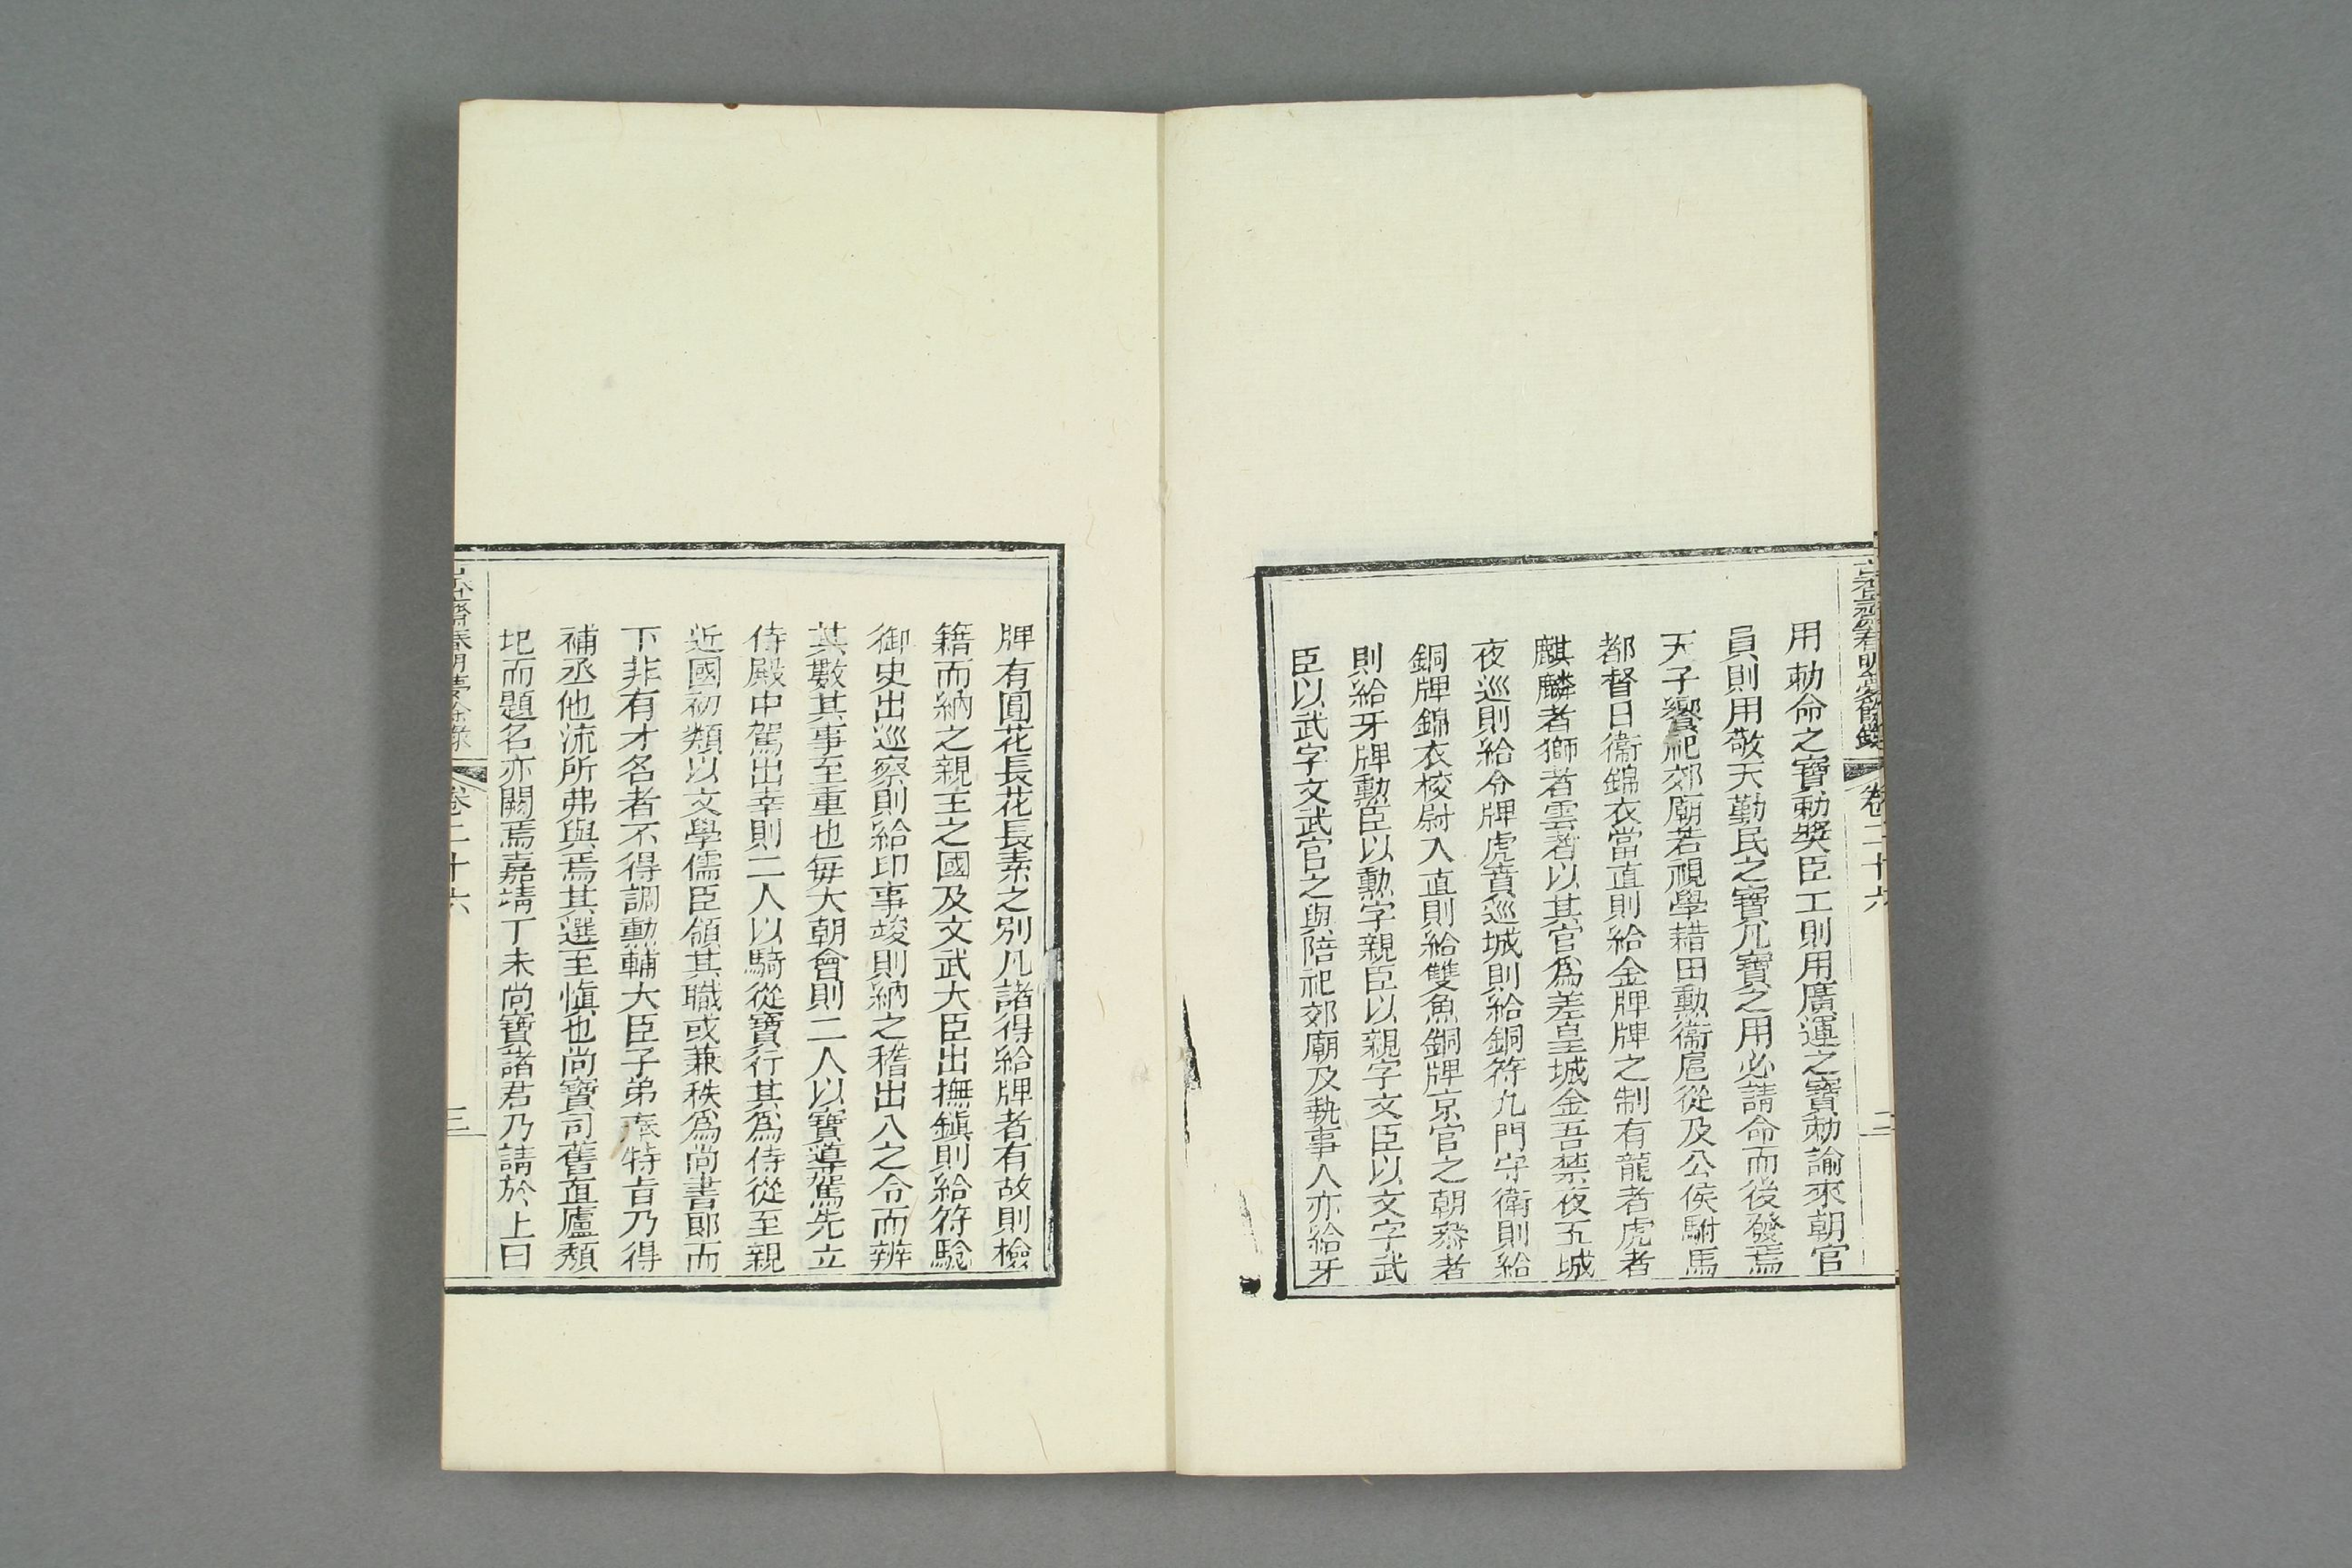 古香齋春明夢餘錄
卷二十六
二
用勅命之寶勅獎臣工則用廣運之寶勅諭來朝官
員則用敬天勤民之寶凡寶之用必請命而後發焉
天子饗祀郊廟若視學耤田勳衞扈從及公侯駙馬
都督日衞錦衣當直則給金牌牌之制有龍者虎者
麒麟者獅者雲者以其官爲差皇城金吾禁夜五城
夜巡則給令牌虎賁巡城則給銅符九門守衛則給
銅牌錦衣校尉入直則給雙魚銅牌京官之朝叅者
則給牙牌勳臣以勳字親臣以親字文臣以文字武
臣以武字文武官之與陪祀郊廟及執事人亦給牙
牌有圓花長花長素之別凡諸得給牌者有故則檢
籍而納之親王之國及文武大臣出撫鎭則給符驗
御史出巡察則給印事竣則納之稽出入之令而辨
其數其事至重也每大朝會則二人以寶導駕先立
侍殿中駕出幸則二人以騎從寶行其爲侍從至親
近國初類以文學儒臣領其職或兼秩爲尚書郞而
下非有才名者不得調勳輔大臣子弟奉特旨乃得
補丞他流所弗與焉其選至愼也尚寶司舊直廬頽
圮而題名亦闕焉嘉靖丁未尚寶諸君乃請於上曰
古香齋春明夢餘錄
卷二十六
三